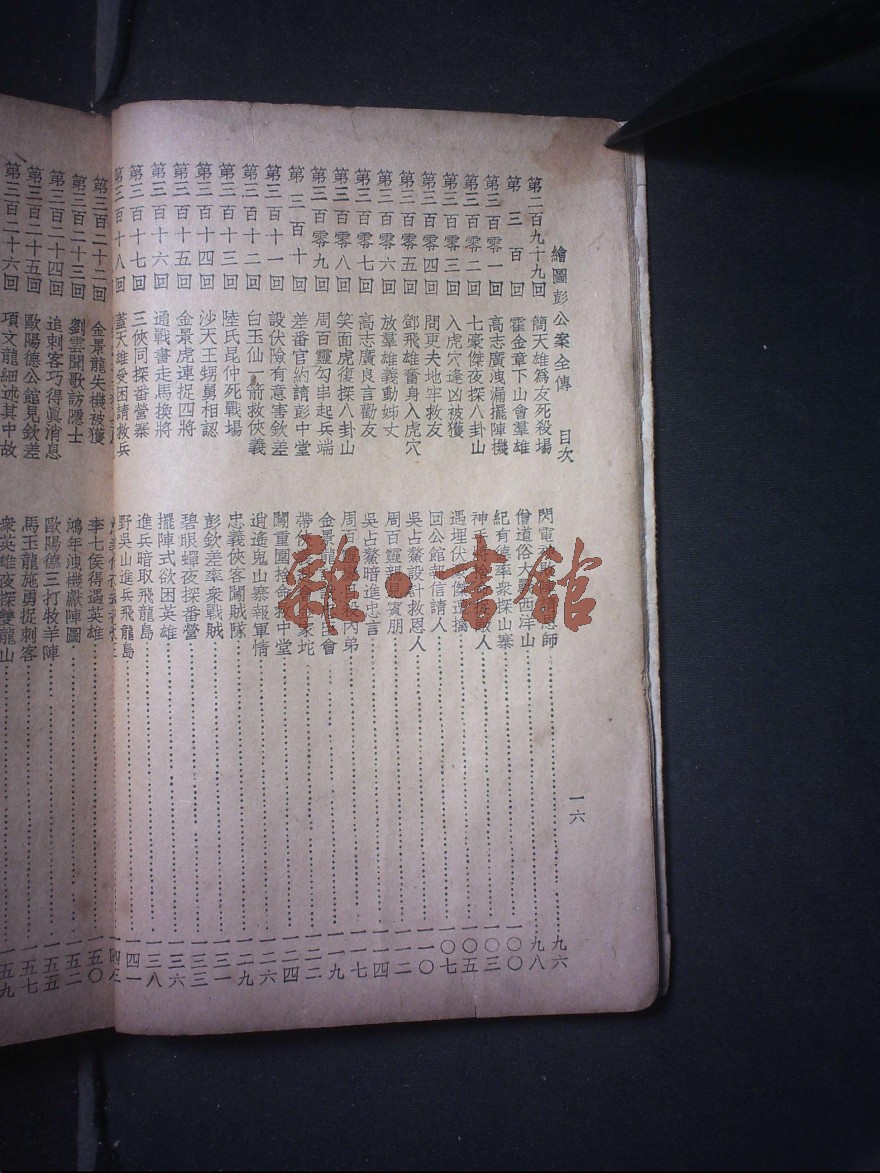 繪圖彭公案全傳 目次 一六
第二百九十九回 簡天雄爲友死殺場 閃電 師 九六
第三百回 霍金章下山會羣雄 僧道俗大鬧西洋山 九八
第三百零一回 高志廣洩漏擺陣機 紀有德率衆探山寨 一〇〇
第三百零二回 七豪傑夜探八卦山 神 人 一〇三
第三百零三回 入虎穴逢凶被獲 遇埋伏豪傑遭擒 一〇五
第三百零四回 問更夫地牢救友 回公館報信請人 一〇七
第三百零五回 鄧飛雄奮身入虎穴 吳占鰲設計救恩人 一一〇
第三百零六回 放羣雄義動姊丈 周百靈親 賓朋 一一二
第三百零七回 高志廣良言勸友 吳占鰲暗進忠言 一一四
第三百零八回 笑面虎復探八卦山 周百 內弟 一一七
第三百零九回 周百靈勾串起兵端 金景龍 會 一一九
第三百十回 差番官約請彭中堂 帶 家坨 一二二
第三百十一回 設伏險有意害欽差 鬧重圍捨命救中堂 一二四
第三百十二回 白玉仙一箭救俠義 逍遙鬼山寨報軍情 一二六
第三百十三回 陸氏昆仲死戰場 忠義俠客闖賊隊 一二九
第三百十四回 沙天王甥舅相認 彭欽差率衆戰賊 一三一
第三百十五回 金景虎連捉四將 碧眼蟬夜探番營 一三三
第三百十六回 通戰書走馬換將 擺陣式欲困英雄 一三六
第三百十七回 三俠同探番營寨 進兵暗取飛龍島 一三八
第三百十八回 蓋天雄受困請救兵 野吳山進兵飛龍島 一四一
第三百二十二回 金景龍失機被獲 李七侯得遇英雄 一五〇
第三百二十三回 劉雲聞歌訪隱士 鴻年洩機獻陣圖 一五二
第三百二十四回 追刺客巧得眞消息 歐陽德三打牧羊陣 一五五
第三百二十五回 歐陽德公館見欽差 馬玉龍施勇捉刺客 一五七
第三百二十六回 項文龍細述其中故 衆英雄夜探雙龍山 一五九
雜·書館